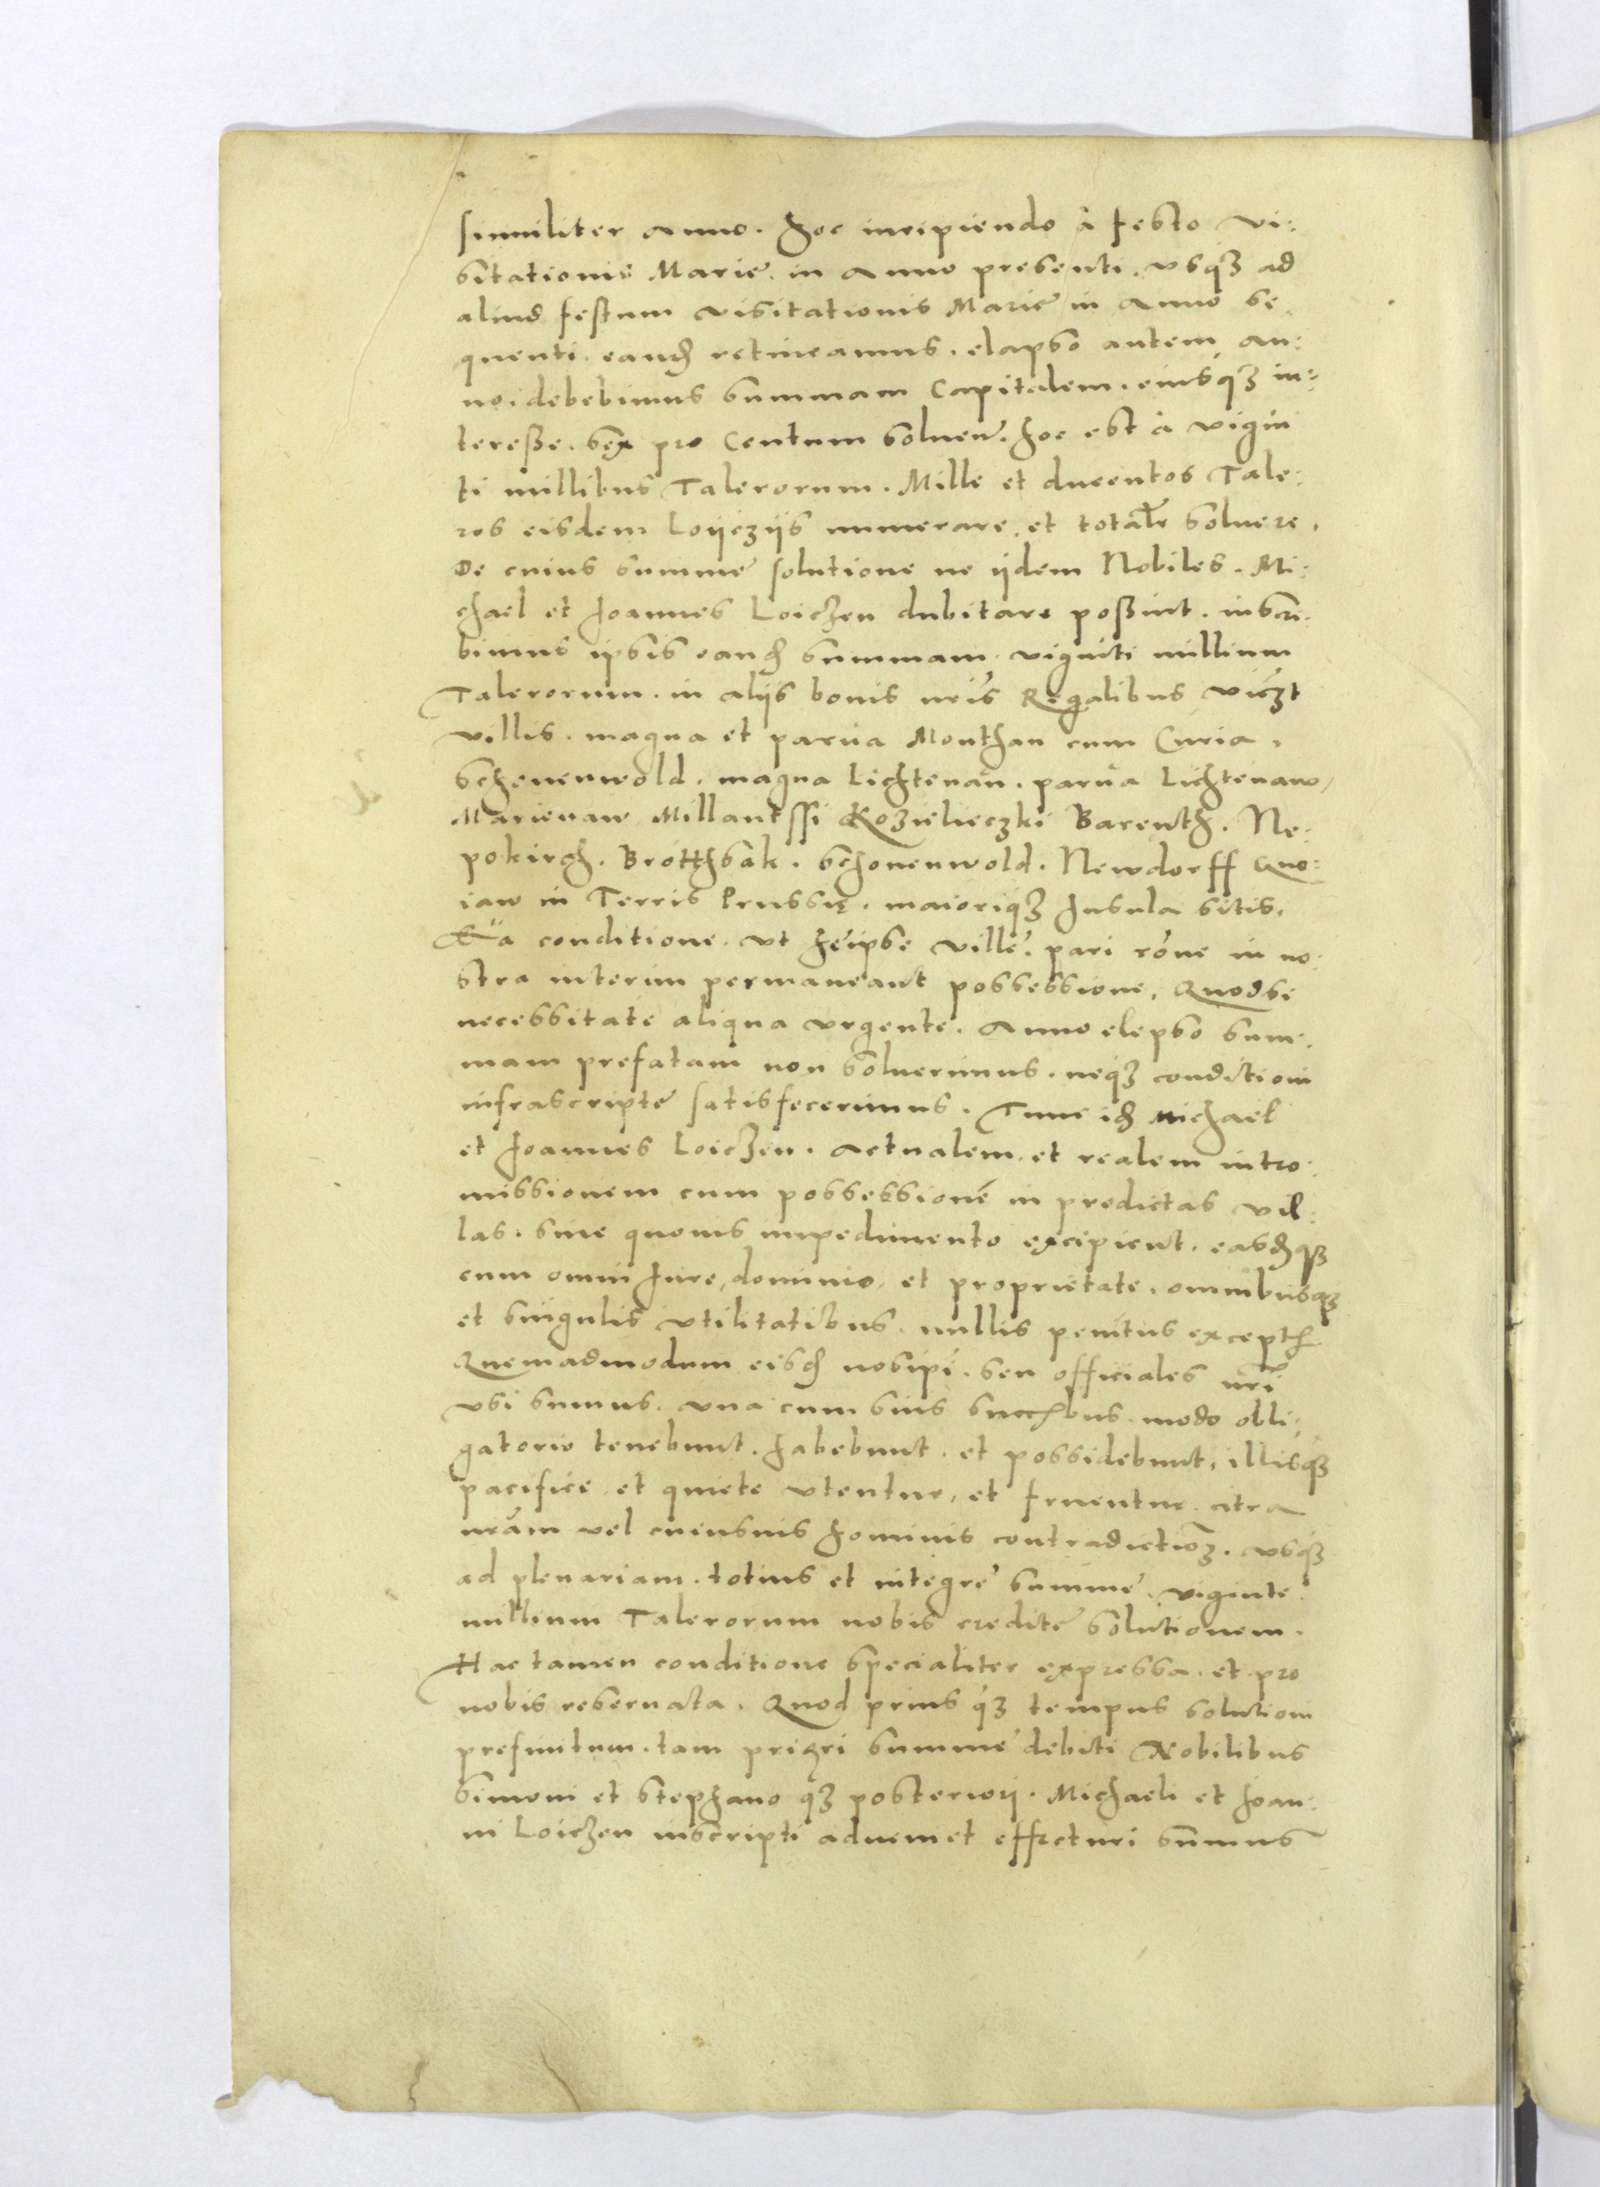 similiter Anno. hoc incipiendo à festo vi:
sitationis Marie. in Anno presenti. vsq3 ad
aliud festum visitationis Marie in Anno se:
quenti. eand retineamus. elapso autem an:
no. debebimus summam Capitalem. eiusq3 in:
teresse. sex pro Centum soluere. hoc est à vigin
ti millibus Talerorum. Mille et ducentos Tale:
ros eisdem Loyczÿs numerare. et totalr soluere.
De cuius summe solutione ne ijdem Nobiles. Mi:
chael et Joannes Loiczen dubitare possint. inscri:
bimus ipsis eand summam. viginti millium
Talerorum. in aliis bonis nris Regalibus viczt
villis. magna et parua Monthau cum Curia,
Schenenwold. magna Lichtenau. parua Lichtenaw,
Marienaw Millantssi Kozielieczki Barenth. Ne:
pokirch. Brotthsak. Schonenwold. Newdorff Gno:
iaw in Terris Prussię. maioriq3 Insula sitis.
Ea conditione. vt heipse ville. pari rone in no:
stra interim permaneant possessione. Quodsi
necessitate aliqua vrgente. Anno elepso sum:
mam prefatam non soluerimus. neq3 conditioni
infrascripte satisfecerimus. Tunc id Michael
et Joannes Loiczen. Actualem. et realem intro:
missionem cum possessione in predictas vil:
las. sine quouis impedimento excipient. easdq3
cum omni Jure, dominio, et proprietate. omnibusq3
et singulis vtilitatibus. nullis penitus except
Quemadmodum eisd nosipi. seu officiales nri
vsi sumus. vna cum suis succbus. modo obli:
gatorio tenebunt. habebunt. et possidebunt. illisq3
pacifice. et quiete vtentur, et fruentur. citra
nram vel cuiusuis hominis contradiction3. vsq3
ad plenariam. totius et integre summe. viginti
millium Talerorum nobis credite solutionem.
Hac tamen conditione specialiter expressa. et pro
nobis reseruata. Quod prius q3 tempus solutioni
prefinitum. tam priori summe debiti Nobilibus
Simoni et Stephano q3 posteriori. Michaeli et Joan:
ni Loiczen inscripti adueniet effecturi sumus